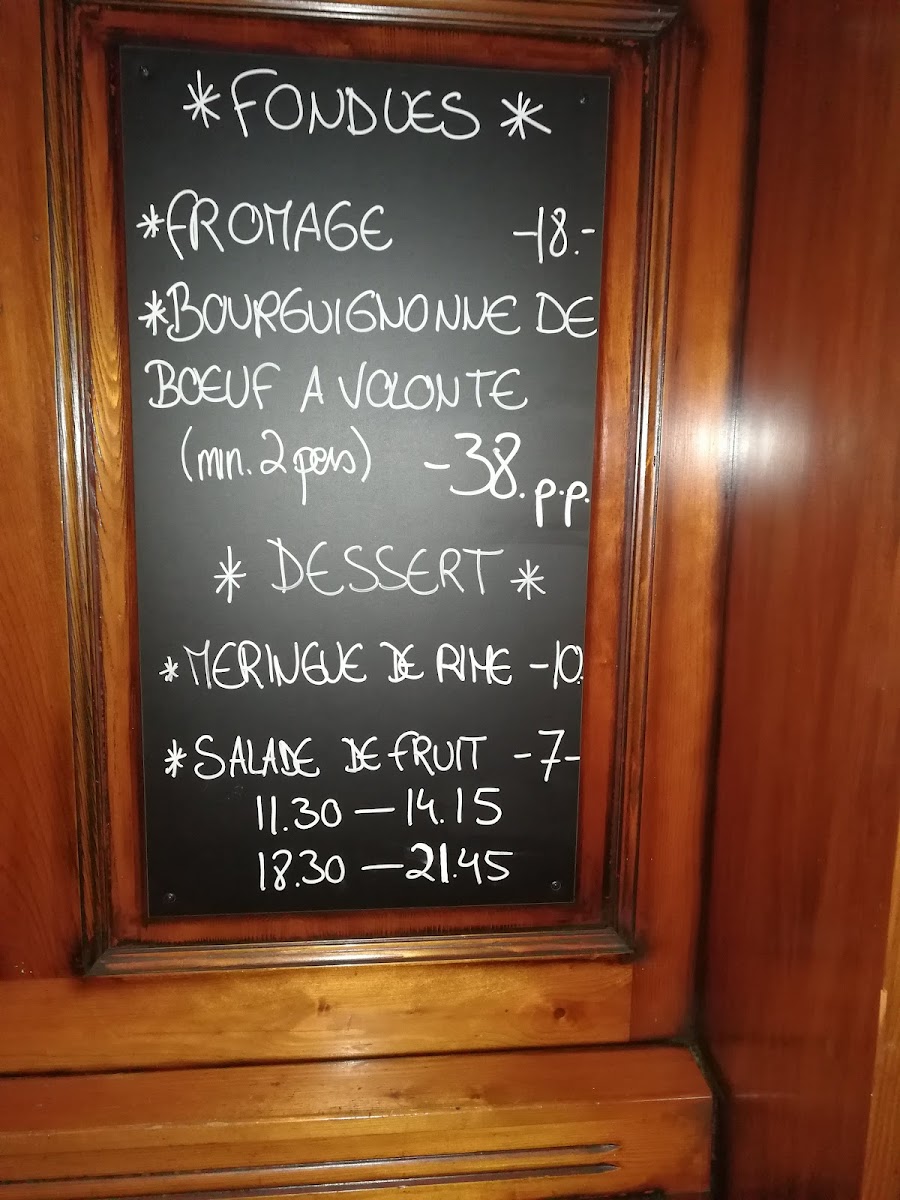 *FONDUES *
*FROMAGE -18.-
*BOURGUIGNONNE DE
BOEUF A VOLONTE
(min. 2 pers) -38. p.p.
* DESSERT *
*MERINGUE DE RIME -10.
*SALADE DE FRUIT -7-
11.30 — 14.15
18.30 — 21.45